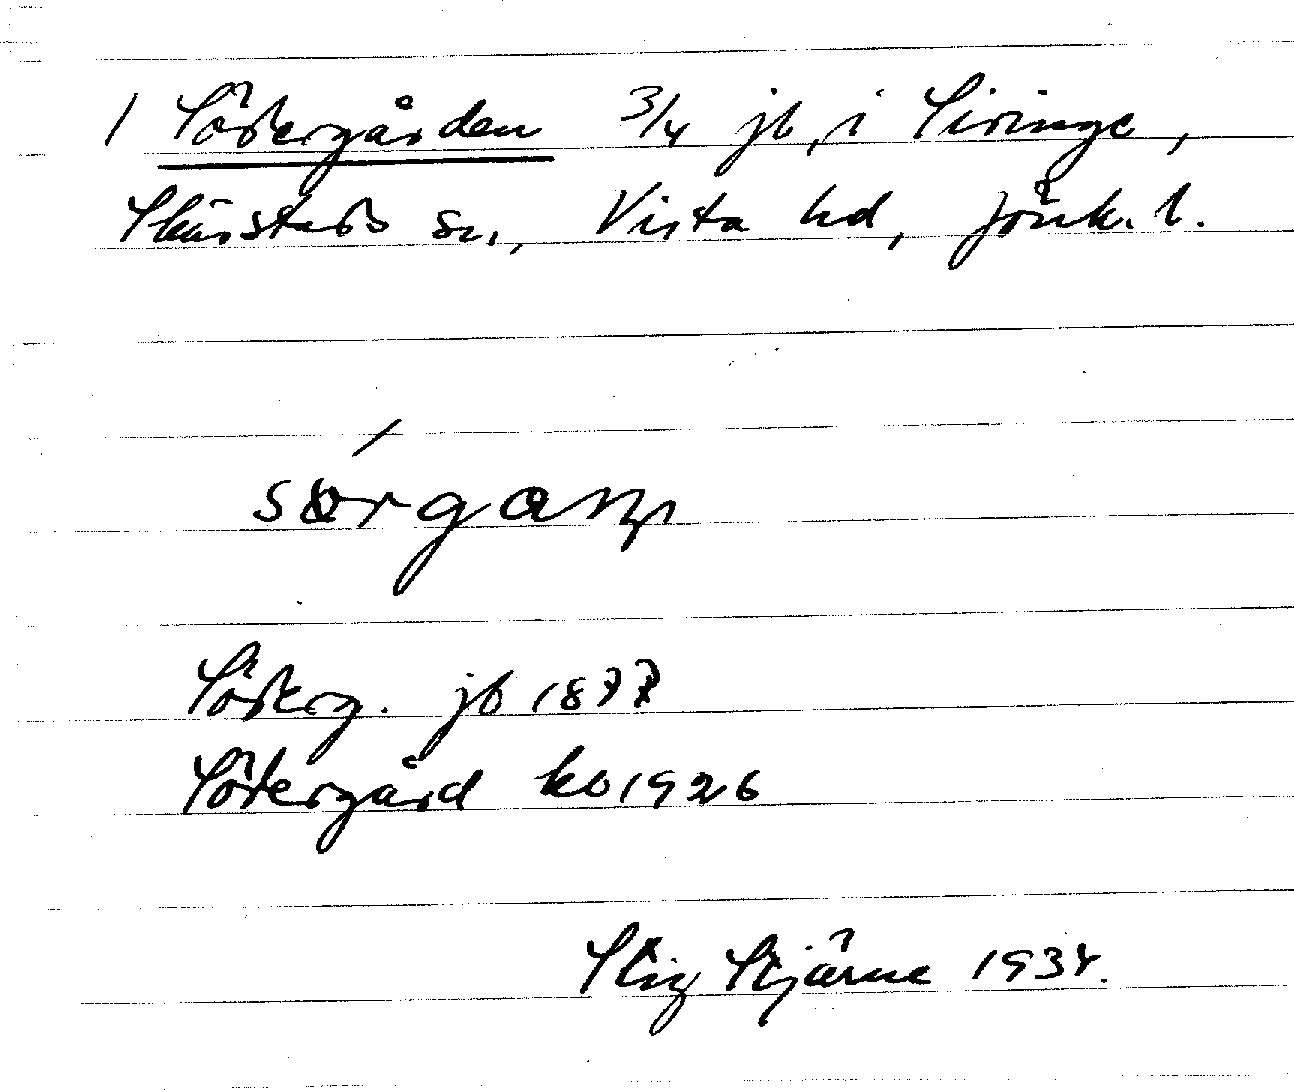 1 Södergården 3/4 jb, i Siringe,
Skärstads sn., Vista hd, Jönk. l.
Söderg. jb 1877
Södergård kb 1926
Stig Stjärne 1934.